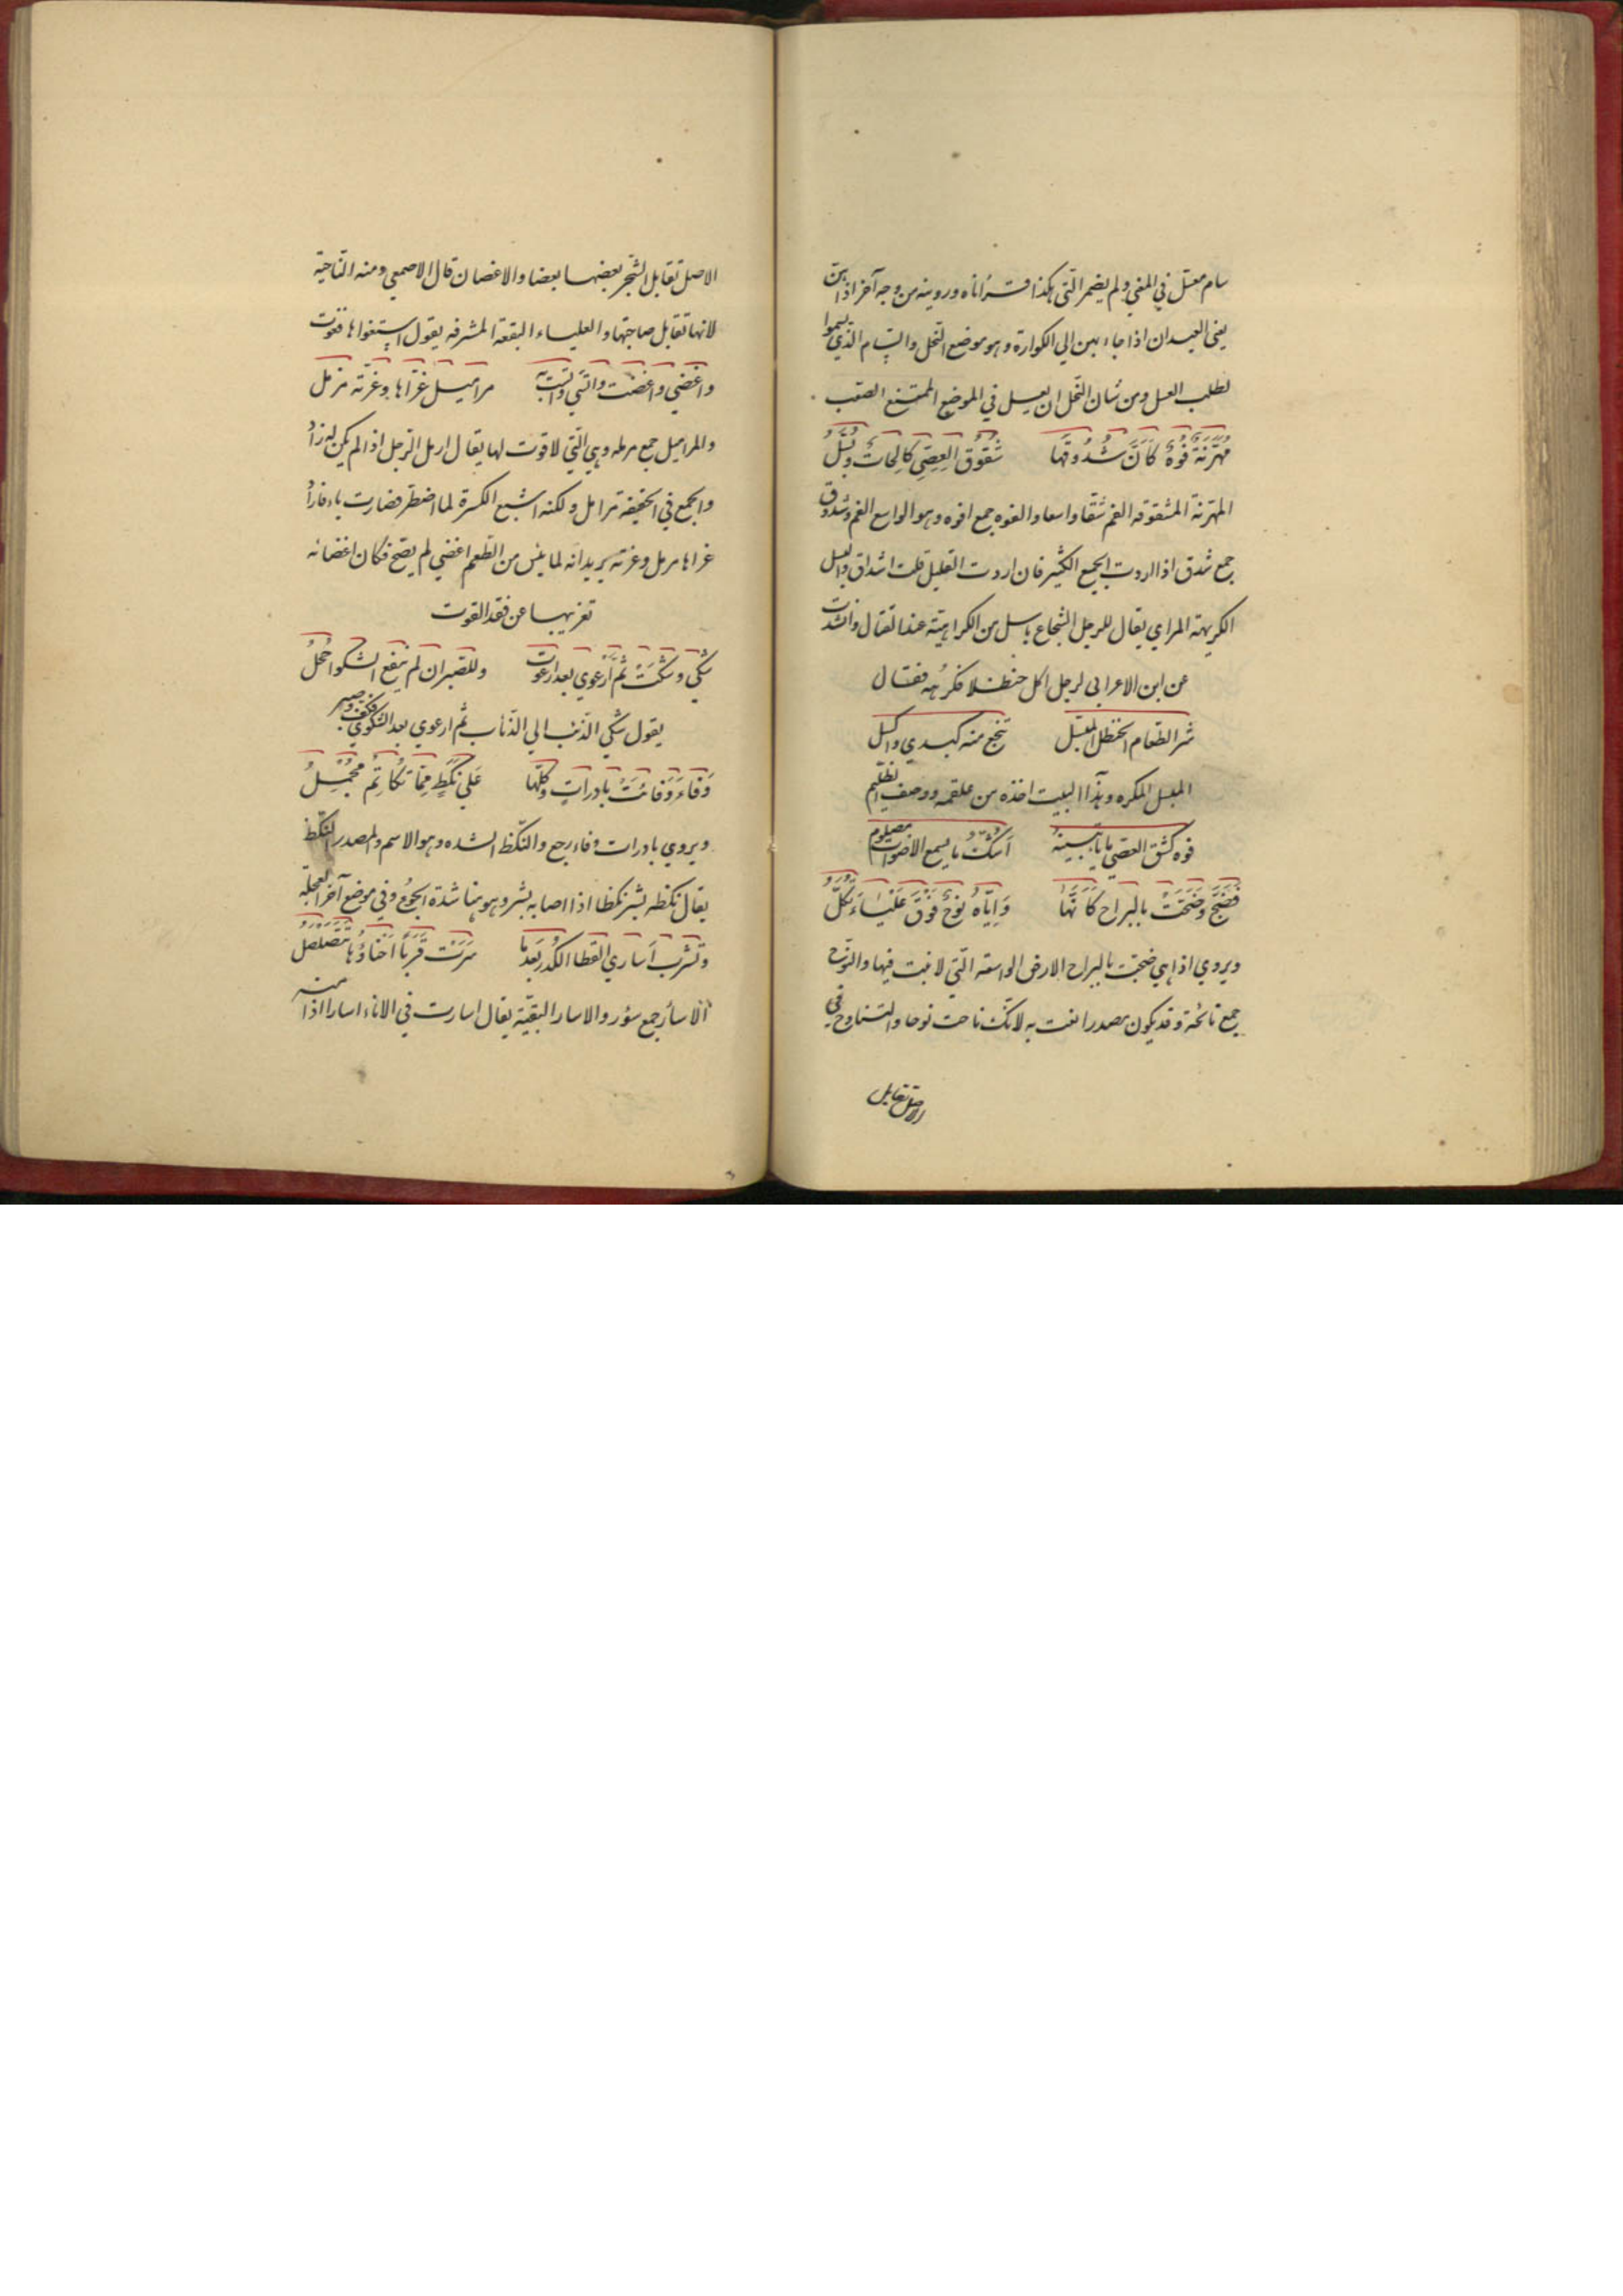 سام معسل في المغي ولم يضمر التي هكذا قرأناه ورويته من وجه آخر اذا بهن
يعني العيدان اذا جاء بهن الي الكوارة وهو موضع النحل والسام الذي يسموا
لطلب العسل ومن شان النحل ان يعسل في الموضع الممتنع الصعب
مُهَرَّتَةٌ فُوهٌ كَاَنَّ شُدُوقَهَا شُقُوقُ العِصِيِّ كَالِحَاتٌ وَبُسَّلُ
المهرتة المشقوقه الفم شقا واسعا والفوه جمع افوه وهو الواسع الفم وشدوق
جمع شدق اذا اردت الجمع الكثير فان اردت القليل قلت اشداق والبسل
الكريهة المراي يقال للرجل الشجاع باسل من الكراهية عند القتال وانشدت
عن ابن الاعرابي لرجل اكل حنظلا فكرهه فقال
شر الطعام الحنظل المبسل تيجع منه كبدي واكسل
المبسل المكره وهذا البيت اخذه من علقمه ووصف الظليم
فوه كشق العصي مايا تبينه اَسَكُّ ما يسمع الاصوات مصلوم
فَضَجَّ وَضَجَّتْ بالبَراحِ كَاَنَّهَا وَاِيَّاهُ نوْحٌ فَوْقَ عَلْيَاءَ ثُكَّلُ
ويروي اذا هي ضجت بالبراح الارض الواسعه التي لا نبت فيها والنوح
جمع نائحة وقد يكون مصدرا نعت به لانك ناحت نوحا والتناوح في
الاصل تقابل
الاصل تقابل الشجر بعضها بعضا والاغصان قال الاصمعي ومنه الناحية
لانها تقابل صاحبتها والعلياء البقعة المشرفه يقول استغواها فغوت
واغضي واغضت واتسي واتست به مراميل عزاها وعزته مرمل
والمراميل جمع مرمله وهي التي لا قوت لها يقال ارمل الرجل اذا لم يكن له زاد
والجمع في الحقيقه مرامل ولكنه اشبع الكسرة لما اضطر فصارت ياء فاراد
عزاها مرمل وعزته يريد انه لما يئس من الطعم اغضي لم يصح فكان اغضائه
تعزيها عن فقد القوت
شكي وشكت ثم ارعوي بعد ارعوت وللصبر ان لم ينفع الشكوا جملُ
يقول شكي الذئب الي الذئاب ثم ارعوي بعد الشكوي فكف وصبر
وَفاءَ وَفائَتْ بادراتٍ وكلّها عَلي نَكَظٍ مِمَّا تُكَاتِمُ مُجْمِلُ
ويروي بادرات وفاء رجع والنكظ الشده وهو الاسم والمصدر النكظ
يقال نكظه بشر نكظا اذا اصابه بشر وهو هنا شدة الجوع وفي موضع آخر العجلة
وتشرب اَسارِي القطا الكُدر بَعدَما سَرَتْ قَرَباً اَحْنَاؤُها تَتَصَلْصَلُ
الاسأر جمع سؤر والاسار البقية يقال اسارت في الاناء اسارا اذا منه